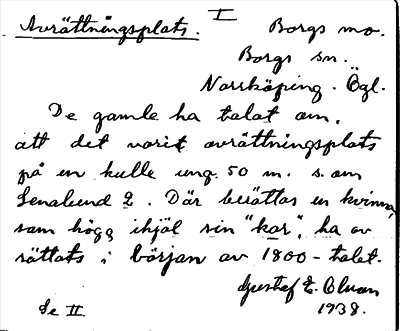 I
Avrättningsplats. Borgs mo.
Borgs sn.
Norrköping. Ögl.
De gamle ha talat om,
att det varit avrättningsplats
på en kulle ung. 50 m. s. om
Lenalund 2. Där berättas en kvinna,
som högg ihjäl sin "kar", ha av
rättats i början av 1800-talet.
Gustaf E.
1938.
Se II